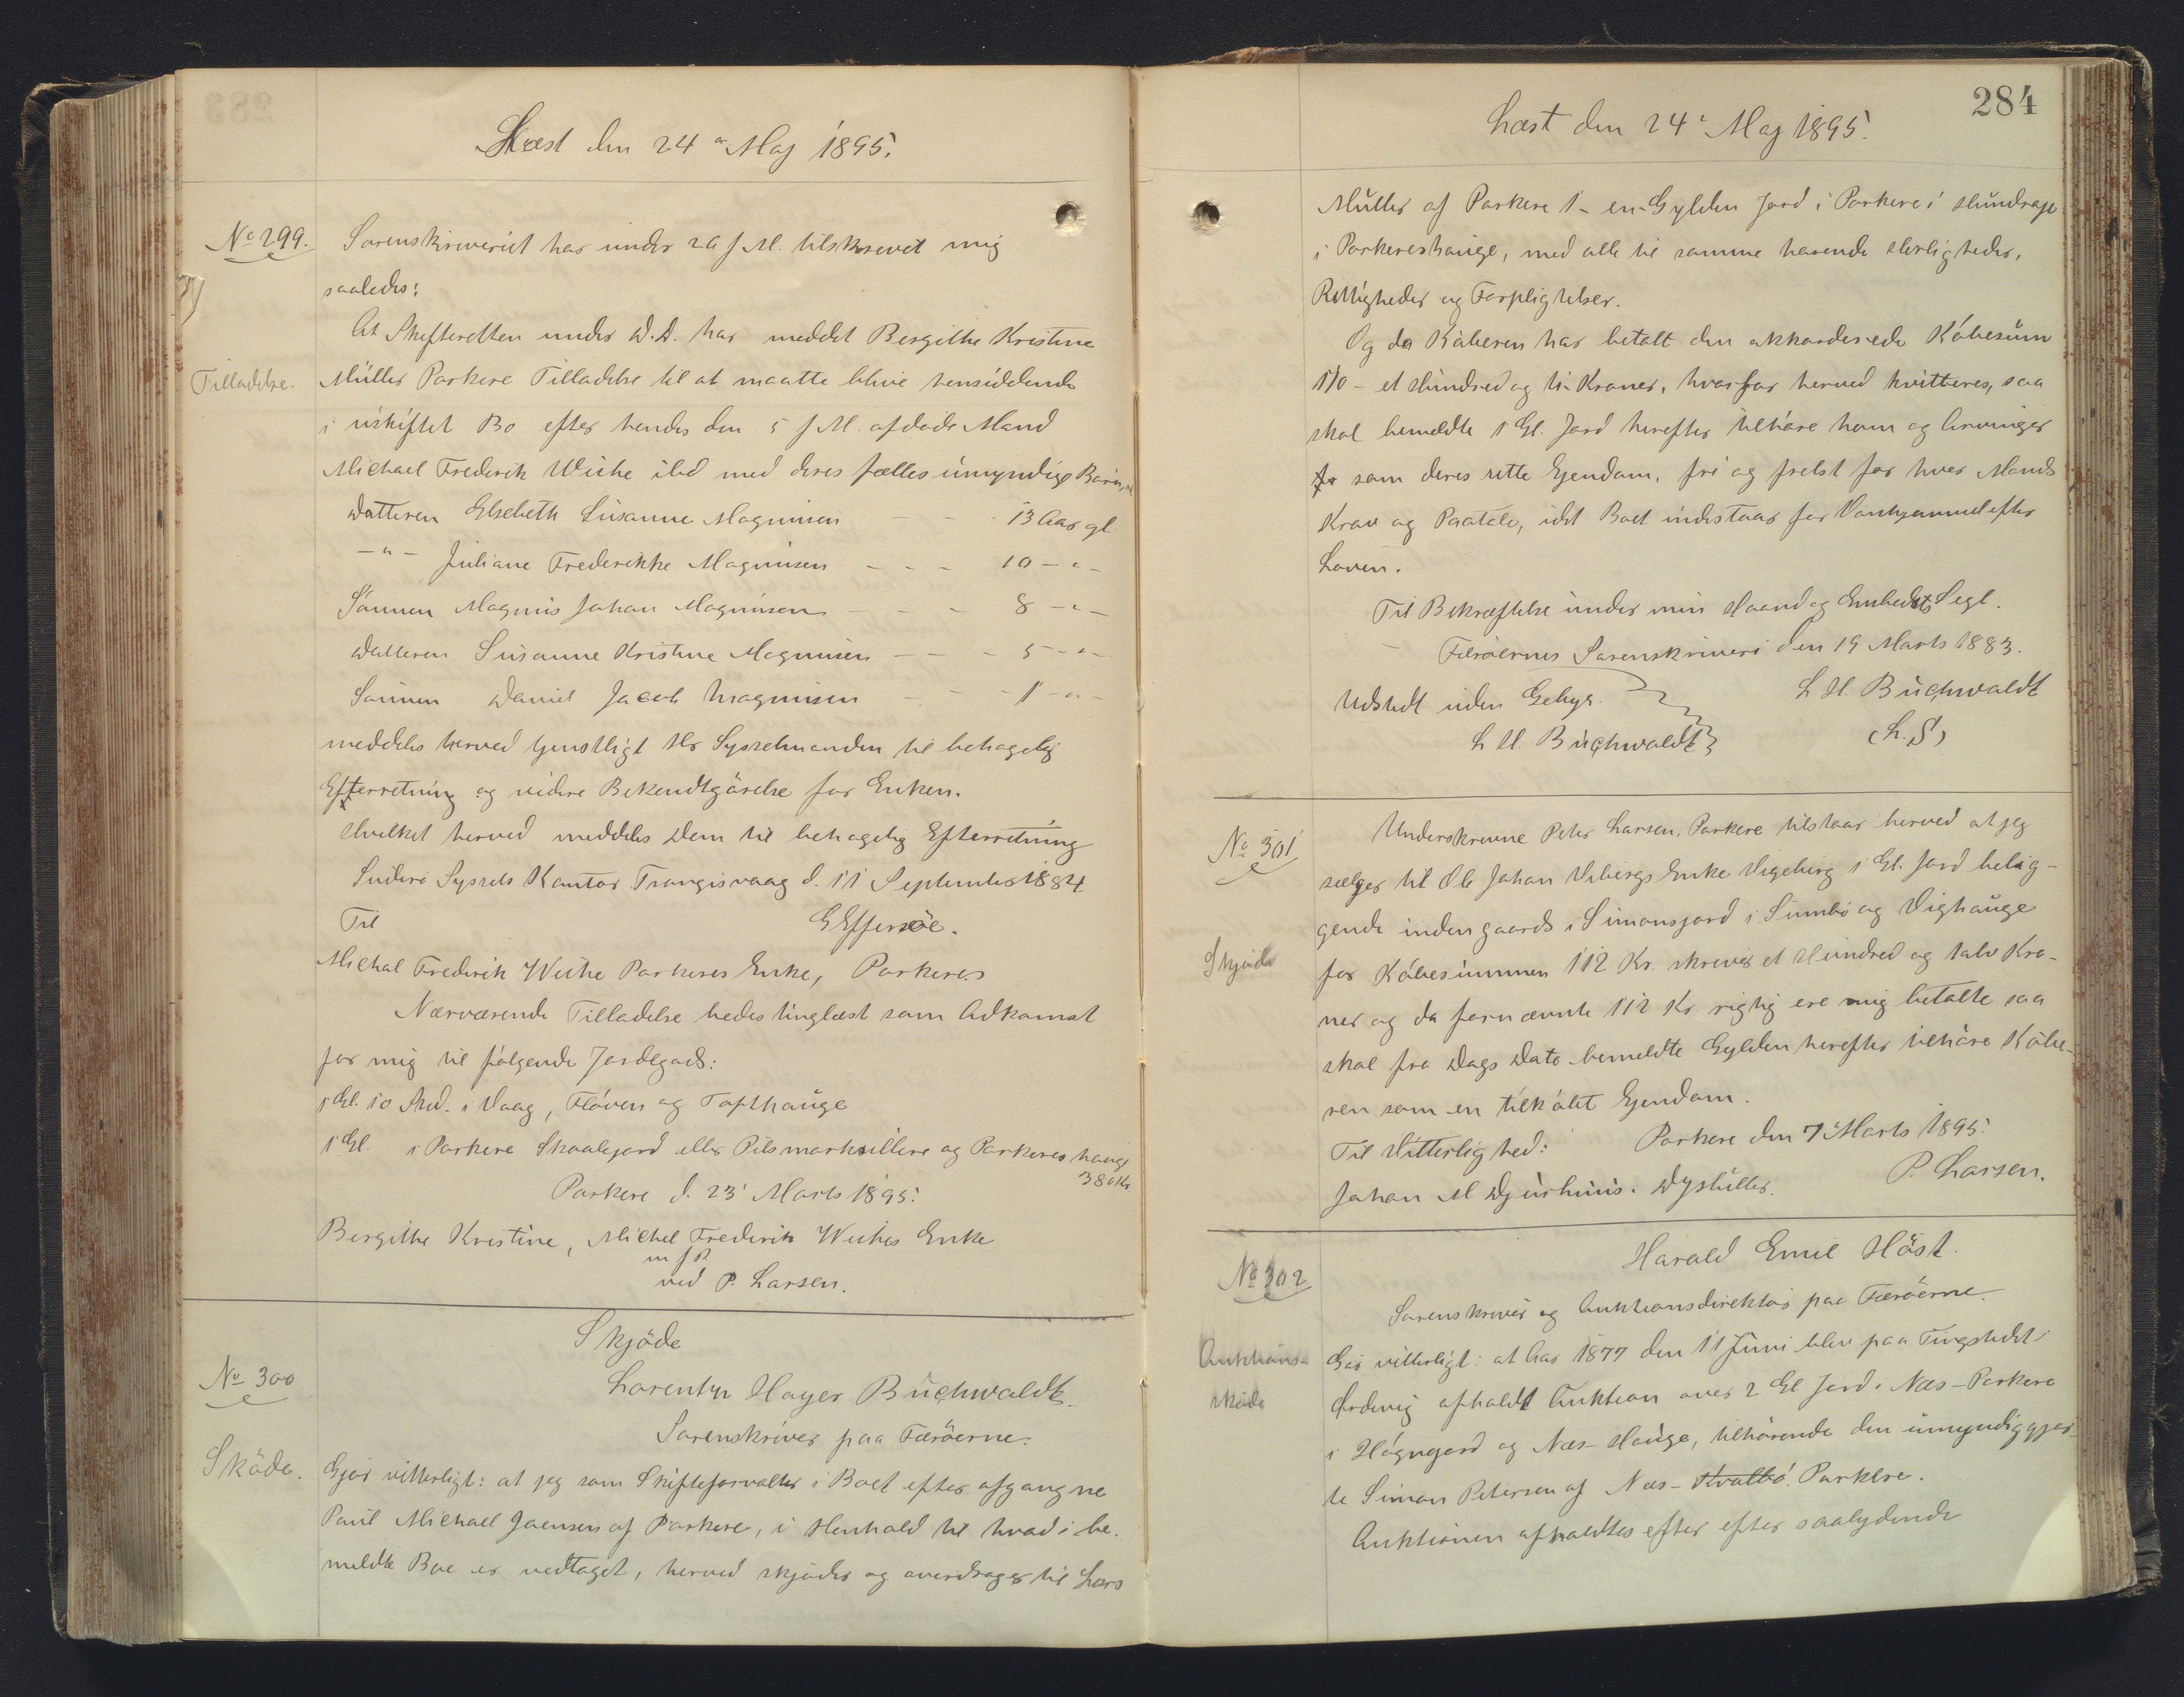 Læst den 24 Maj 1895.
No 299.
Sorenskriveriet har under 29 f.M. tilskrevet mig
saaledes:
At Skifteretten under D.D. har meddelt Bergithe Kristine
Tilladelse.
Müller Porkere Tilladelse til at maatte blive hensiddende
i uskiftet Bo efter hendes den 5 f.M. afdøde Mand
Michael Frederik Weihe ibd med deres fælles umyndige Børn,
Datteren Elsebeth Susanne Magnusen - - - 13 Aar gl
-"- Juliane Frederikke Magnusen - - - 10 -"-
Sønnen Magnus Johan Magnusen - - - 8 -"-
Datteren Susanne Kristine Magnusen - - - 5 -"-
Sønnen Daniel Jacob Magnusen - - - 1 -"-
meddeles herved tjenstligt Hr Sysselmanden til behagelig
Efterretning og videre Bekendtgörelse for Enken.
Hvilket herved meddeles Dem til behagelig Efterretning
Suderö Syssels Kontor Trangisvaag d. 11 September 1884
Til
GEffersöe.
Michal Frederik Weihe Porkeres Enke, Porkeres
Nærværende Tilladelse bedes tinglæst som Adkomst
for mig til følgende Jordegods:
1 Gl. 10 Skd. i Vaag, Flöven og Tofthauge
1 Gl i Porkere Skaalegord eller Pilsmarksillere og Porkeres hauge
380 Kr.
Porkere d. 23' Marts 1895.
Bergithe Kristine, Michel Frederik Weihes Enke
m f P.
ved P. Larsen.
Skjöde
No 300
Lorentz Høyer Buchwaldt.
Sorenskriver paa Færöerne.
Sköde.
Gjør vitterligt: at jeg som Skifteforvalter i Boet efter afgangne
Poul Michael Joensen af Porkere, i Henhold til hvad i be-
meldte Boe er vedtaget, herved skjøder og overdrager til Lars
284
Læst den 24' Maj 1895.
Müller af Porkere 1 - en - Gylden Jord i Porkere i Hundraje
i Porkereshauge, med alle til samme havende Herligheder,
Rettigheder og Forpligtelser.
Og da Köberen har betalt den akkorderede Köbesum
110 - et Hundred og ti - Kroner, hvorfor herved kvitteres, saa
skal bemeldte 1 Gl. Jord herefter tilhöre ham og Arvinger
som deres rette Ejendom, fri og frelst for hver Mands
Krav og Paatale, idet Boet indestaar for Vanhjemmel efter
Loven.
Til Bekræftelse under min Haand og Embedets Segl.
Færöernes Sorenskriveri den 19 Marts 1883.
Udstedt uden Gebyr.
L H. Buchwaldt
L H. Buchwaldt
(L.S)
No 301
Underskrevne Peter Larsen, Porkere tilstaar herved at jeg
sælger til Ole Johan Vibergs Enke Vigeberg 1 Gl. Jord belig-
gende inden gaards i Simonsjord i Sumbö og Vighauge
Skjöde
for Köbesummen 112 Kr. skriver et Hundred og tolv Kro-
ner og da fornævnte 112 Kr rigtig ere mig betalte saa
skal fra Dags Dato bemeldte Gylden herefter tilhöre Köbe-
ren som en tilköbt Ejendom.
Til Vitterlighed:
Porkere den 7' Marts 1895.
P. Larsen.
Johan M Djurhuus. Dyslüller.
No 302
Harald Emil Höst.
Sorenskriver og Auktionsdirektør paa Færöerne.
Auktions-
sköde
Gør vitterligt: at Aar 1877 den 11 Juni blev paa Tingstedet i
Ørdevig afholdt Auktion over 2 Gl Jord i Næs-Porkere
i Högnejord og Næs-Hauge, tilhörende den umyndiggjor-
te Simon Petersen af Næs-Hvalbö. Porkere.
Auktionen afholdtes efter efter saalydende